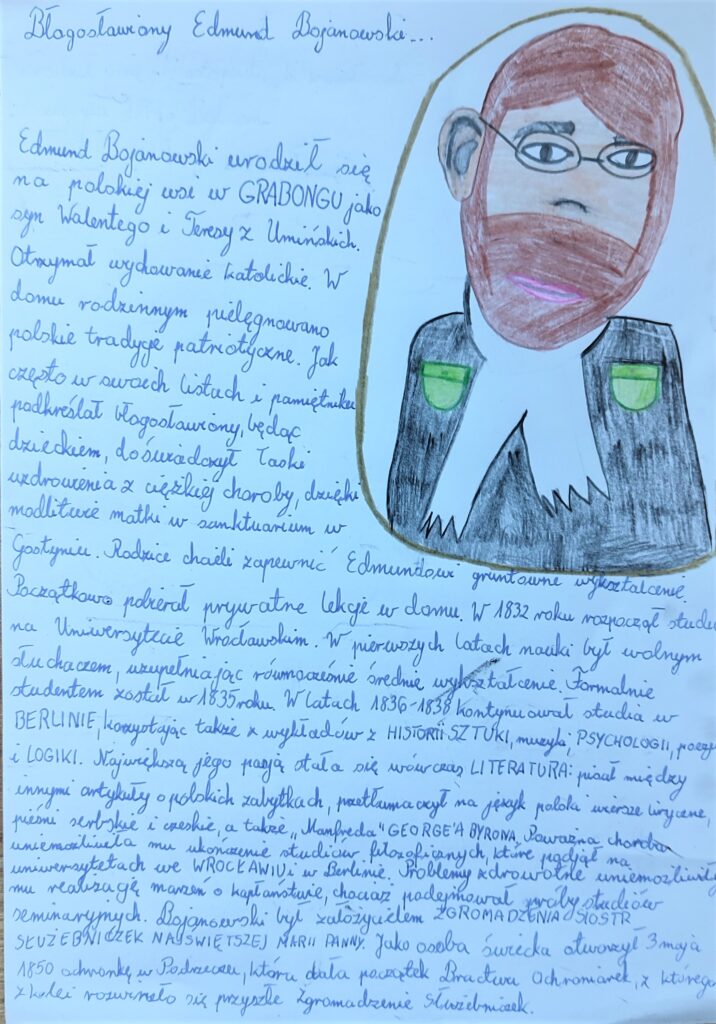 Błogosławiony Edmund Bojanowski...
Edmund Bojanowski urodził się
na polskiej wsi w GRABONGU jako
syn Walentego i Teresy z Umińskich.
Otrzymał wychowanie katolickie. W
domu rodzinnym pielęgnowano
polskie tradycje patriotyczne. Jak
często w swoich listach i pamiętniku
podkreślał błogosławiony, będąc
dzieckiem, doświadczył łaski
uzdrowienia z ciężkiej choroby, dzięki
modlitwie matki w sanktuarium w
Gostyniu. Rodzice chcieli zapewnić Edmundowi gruntowne wykształcenie.
Początkowo pobierał prywatne lekcje w domu. W 1832 roku rozpoczął studi
na Uniwersytecie Wrocławskim. W pierwszych latach nauki był wolnym
słuchaczem, uzupełniając równocześnie średnie wykształcenie. Formalnie
studentem został w 1835 roku. W latach 1836-1838 kontynuował studia w
BERLINIE, korzystając także z wykładów z HISTORII SZTUKI, muzyki, PSYCHOLOGII, poezji
i LOGIKI. Największą jego pasją stała się wówczas LITERATURA: pisał między
innymi artykuły o polskich zabytkach, przetłumaczył na język polski wiersze liryczne,
pieśni serbskie i czeskie, a także „Manfreda" GEORGE'A BYRONA. Poważna choroba
uniemożliwiła mu ukończenie studiów filozoficznych, które podjął na
uniwersytetach we WROCŁAWIU i w Berlinie. Problemy zdrowotne uniemożliwiły
mu realizację marzeń o kapłaństwie, chociaż podejmował próby studiów
seminaryjnych. Bojanowski był założycielem ZGROMADZENIA SIÓSTR
SŁUŻEBNICZEK NAJŚWIĘTSZEJ MARII PANNY. Jako osoba świecka otworzył 3 maja
1850 ochronkę w Podrzeczu, która dała początek Bractwu Ochroniarek, z którego
z kolei rozwinęło się przyszłe Zgromadzenie Służebniczek.